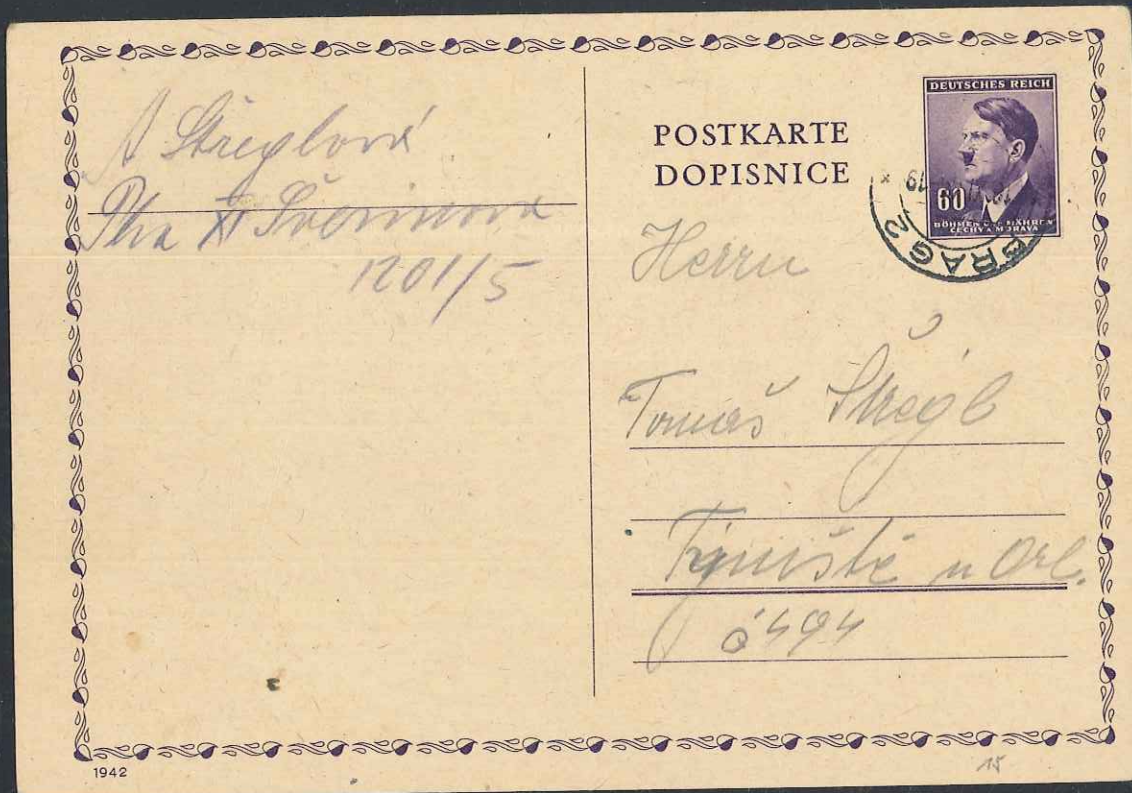 A Střeglová
Pha XI
1201/5
POSTKARTE
DOPISNICE
DEUTSCHES REICH
60
BÖHMEN UND MÄHREN
ČECHY A MORAVA
PRAG 2
Herrn
Tomáš Štřégl
Týniště n Orl.
č 494
1942
15